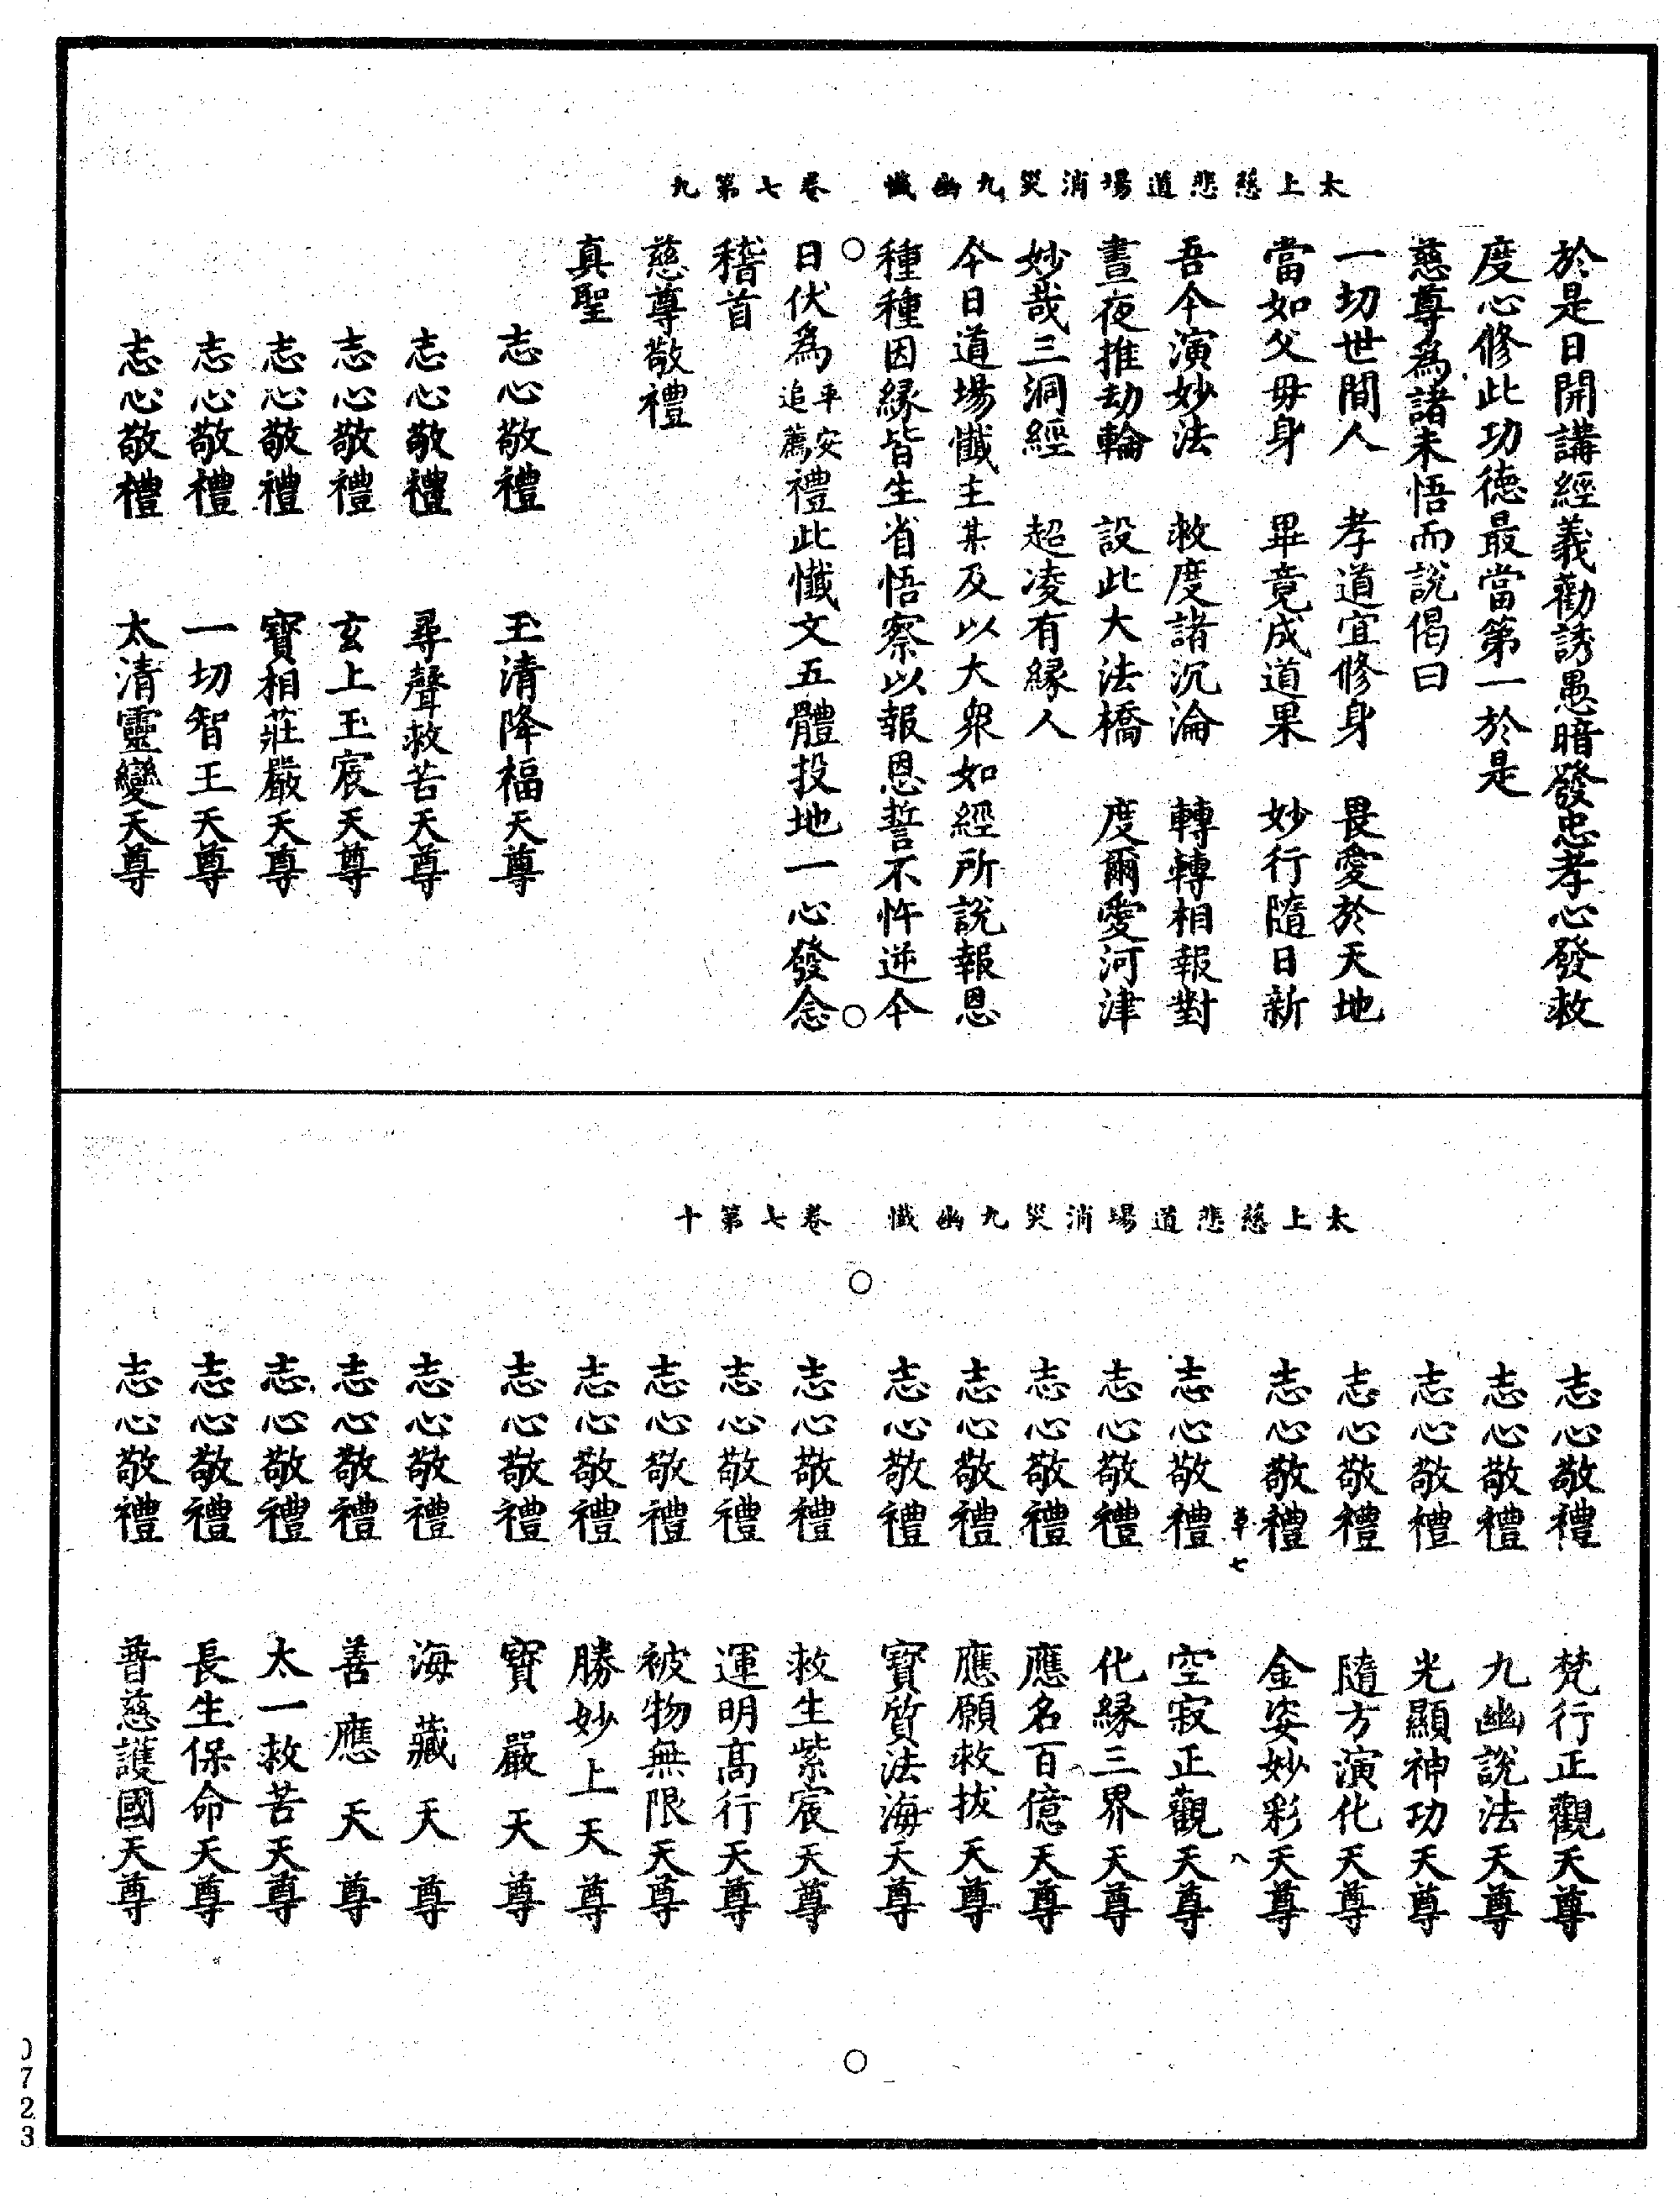 太上慈悲道場消災九幽懺　卷七第九
於是日開講經義勸誘愚暗發忠孝心發救
度心修此功德最當第一於是
慈尊為諸未悟而說偈曰
一切世間人　孝道宜修身　畏愛於天地
當如父母身　畢竟成道果　妙行隨日新
吾今演妙法　救度諸沉淪　轉轉相報對
晝夜推劫輪　設此大法橋　度爾愛河津
妙哉三洞經　超凌有緣人
今日道場懺主某及以大衆如經所說報恩
種種因緣皆生省悟察以報恩誓不忤逆今
日伏為平安追薦禮此懺文五體投地一心發念
稽首
慈尊敬禮
真聖
志心敬禮　玉清降福天尊
志心敬禮　尋聲救苦天尊
志心敬禮　玄上玉宸天尊
志心敬禮　寶相莊嚴天尊
志心敬禮　一切智王天尊
志心敬禮　太清靈變天尊
太上慈悲道場消災九幽懺　卷七第十
志心敬禮　梵行正觀天尊
志心敬禮　九幽說法天尊
志心敬禮　光顯神功天尊
志心敬禮　隨方演化天尊
志心敬禮　金姿妙彩天尊
草七　八
志心敬禮　空寂正觀天尊
志心敬禮　化緣三界天尊
志心敬禮　應名百億天尊
志心敬禮　應願救拔天尊
志心敬禮　寶質法海天尊
志心敬禮　救生紫宸天尊
志心敬禮　運明高行天尊
志心敬禮　被物無限天尊
志心敬禮　勝妙上天尊
志心敬禮　寶嚴天尊
志心敬禮　海藏天尊
志心敬禮　善應天尊
志心敬禮　太一救苦天尊
志心敬禮　長生保命天尊
志心敬禮　普慈護國天尊
0723